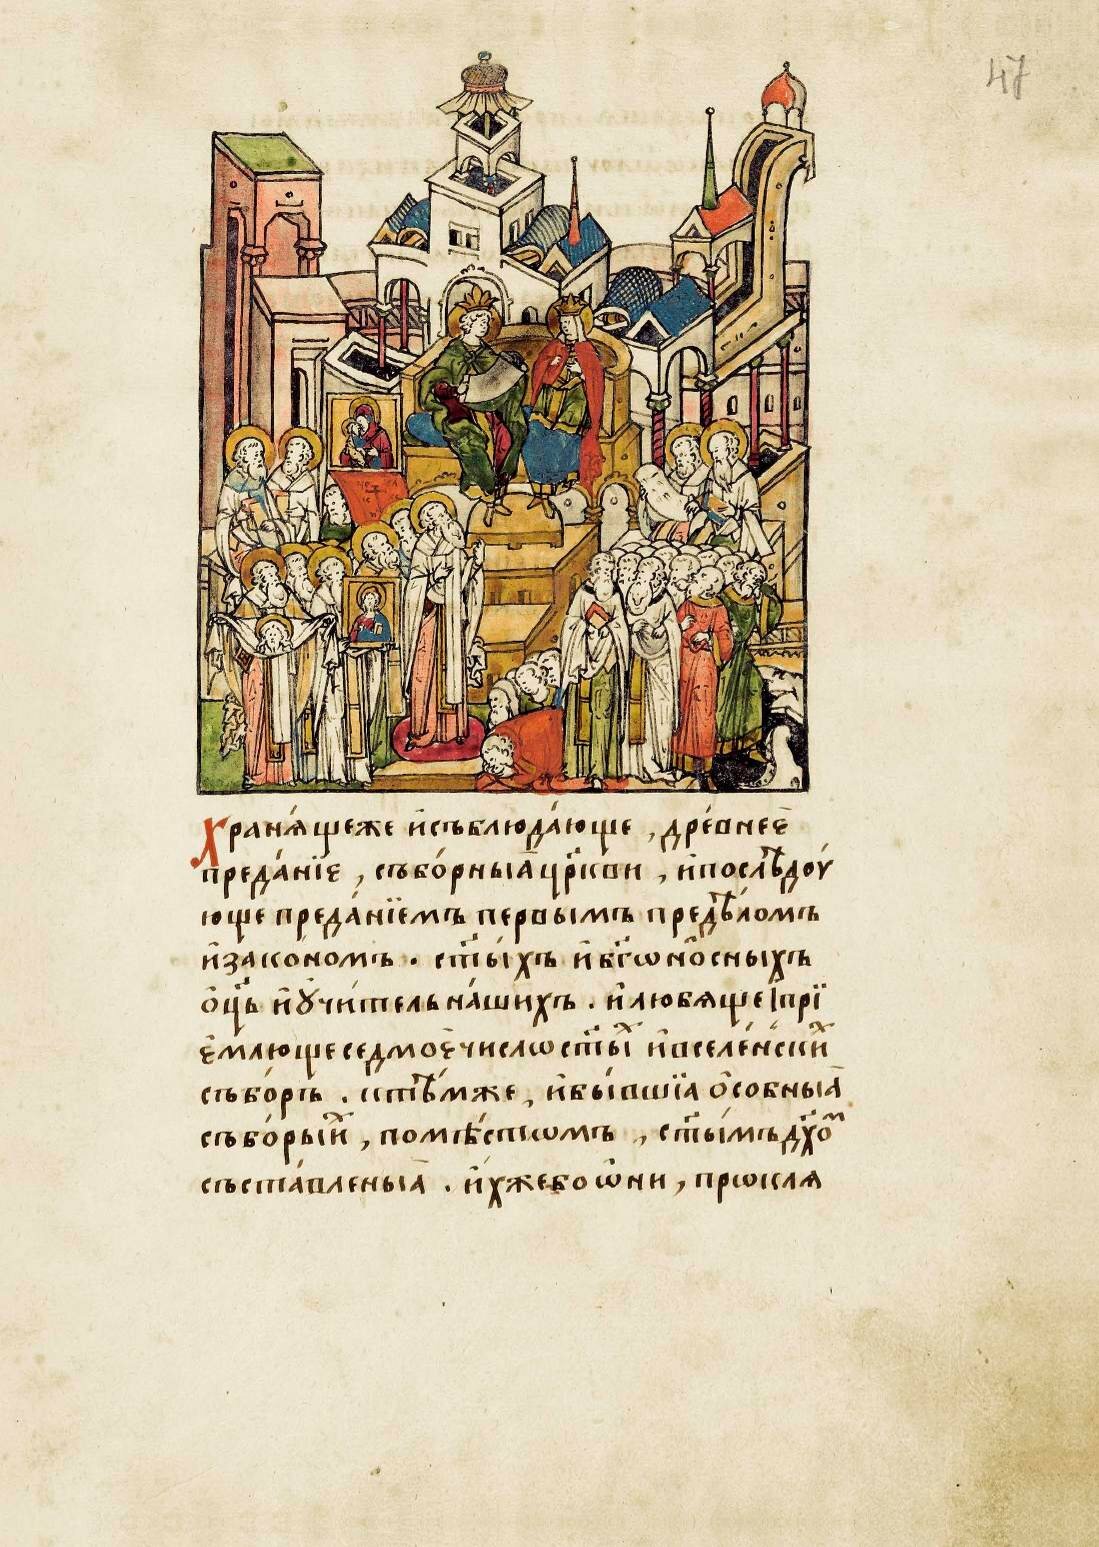 47
Хранѧ́щеже и҆съблюда́юще , дре́внеє
преда́нїє , събо́рныѧ цр҃кви , и҆послѣ́дꙋ
юще преда́нїємъ первымъ предѣ́ломъ
и҆закономъ . ст҃ы́хъ и҆бг҃ѡно́сныхъ
ѻ҆ц҃ъ и҆ѹ҆чи́тель на́шихъ . и҆любѧще прї
є҆млюще седмоє число ст҃ы́ⷯ и҆вселе́нскиⷯ
съборъ . ктѣ́мже , и҆бы́вшїѧ ѻ҆собныѧ
събо́рыи҆ⷯ , помѣ́стѡмъ , ст҃ы́мъ дх҃оⷨ
съста́вленыѧ . и҆́хжебо ѡ҆ни , прѡклѧ